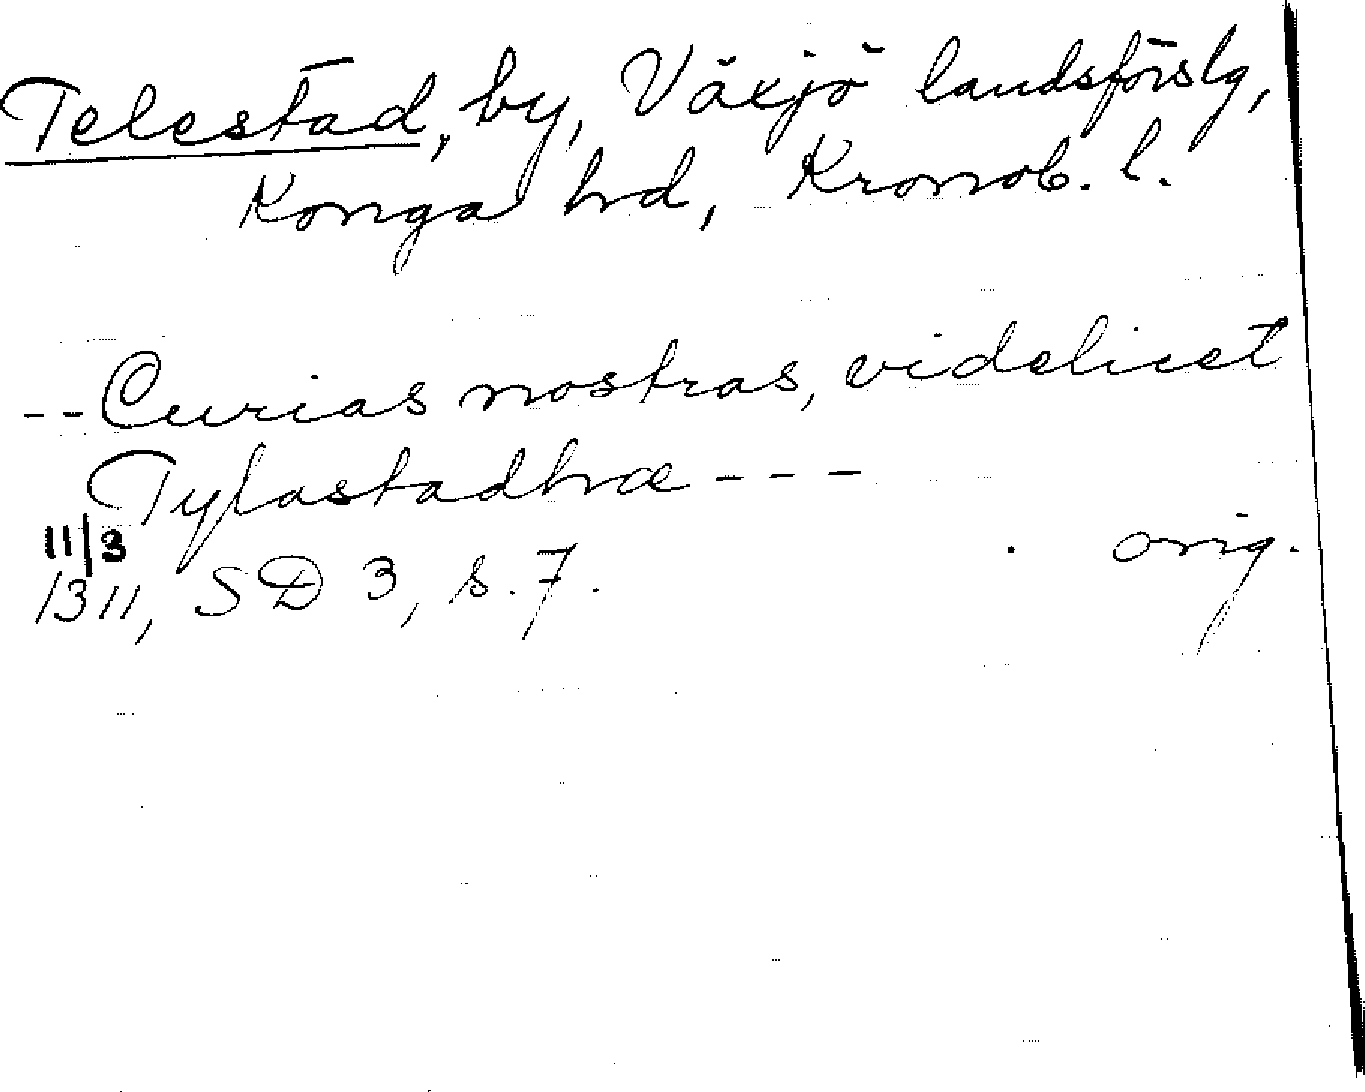 Telestad, by, Växjö landsförslg,
Konga hd, Kronob. l.
-- Curias nostras, videlicet
Tylastadhræ ---
11/3
1311, SD 3, s. 7. orig.